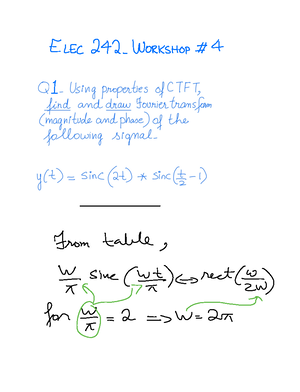 ELEC 242_ WORKSHOP #4
Q1_ Using properties of CTFT,
find and draw Fourier transform
(magnitude and phase) of the
following signal_
y(t) = sinc(2t) * sinc(t/2 - 1)
From table,
W/π sinc (Wt/π) ↔ rect(ω/2W)
for W/π = 2 ⟹ W = 2π